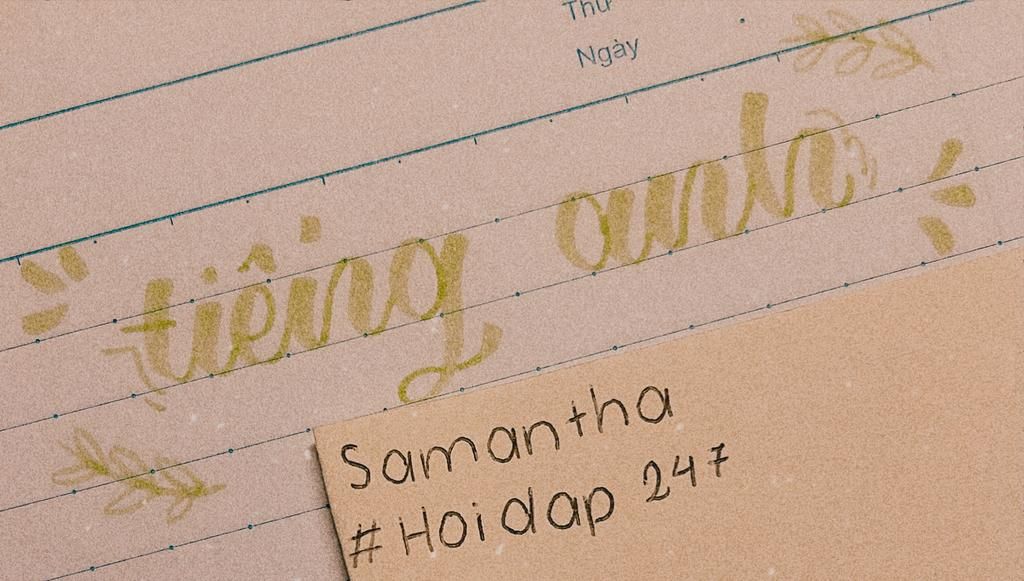 Thứ
Ngày
tiếng anh
Samantha
#Hoidap 247